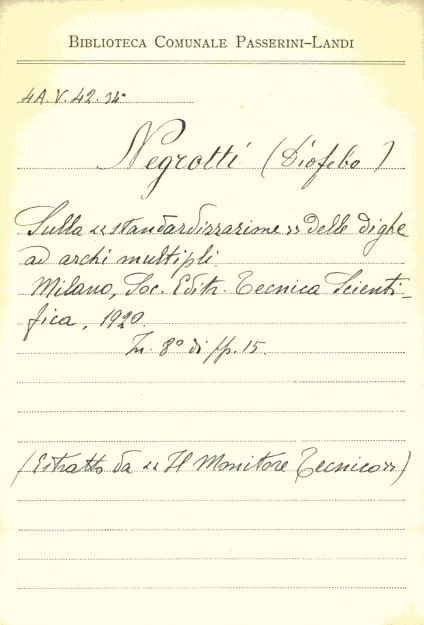 BIBLIOTECA COMUNALE PASSERINI-LANDI
4A.V.42.34°
Negrotti (Diofebo)
Sulla «standardizzazione» delle dighe
ad archi multipli.
Milano, Soc. Editr. Tecnica Scienti-
fica, 1920.
In 8° di pp. 15.
(Estratto da «Il Monitore Tecnico»)